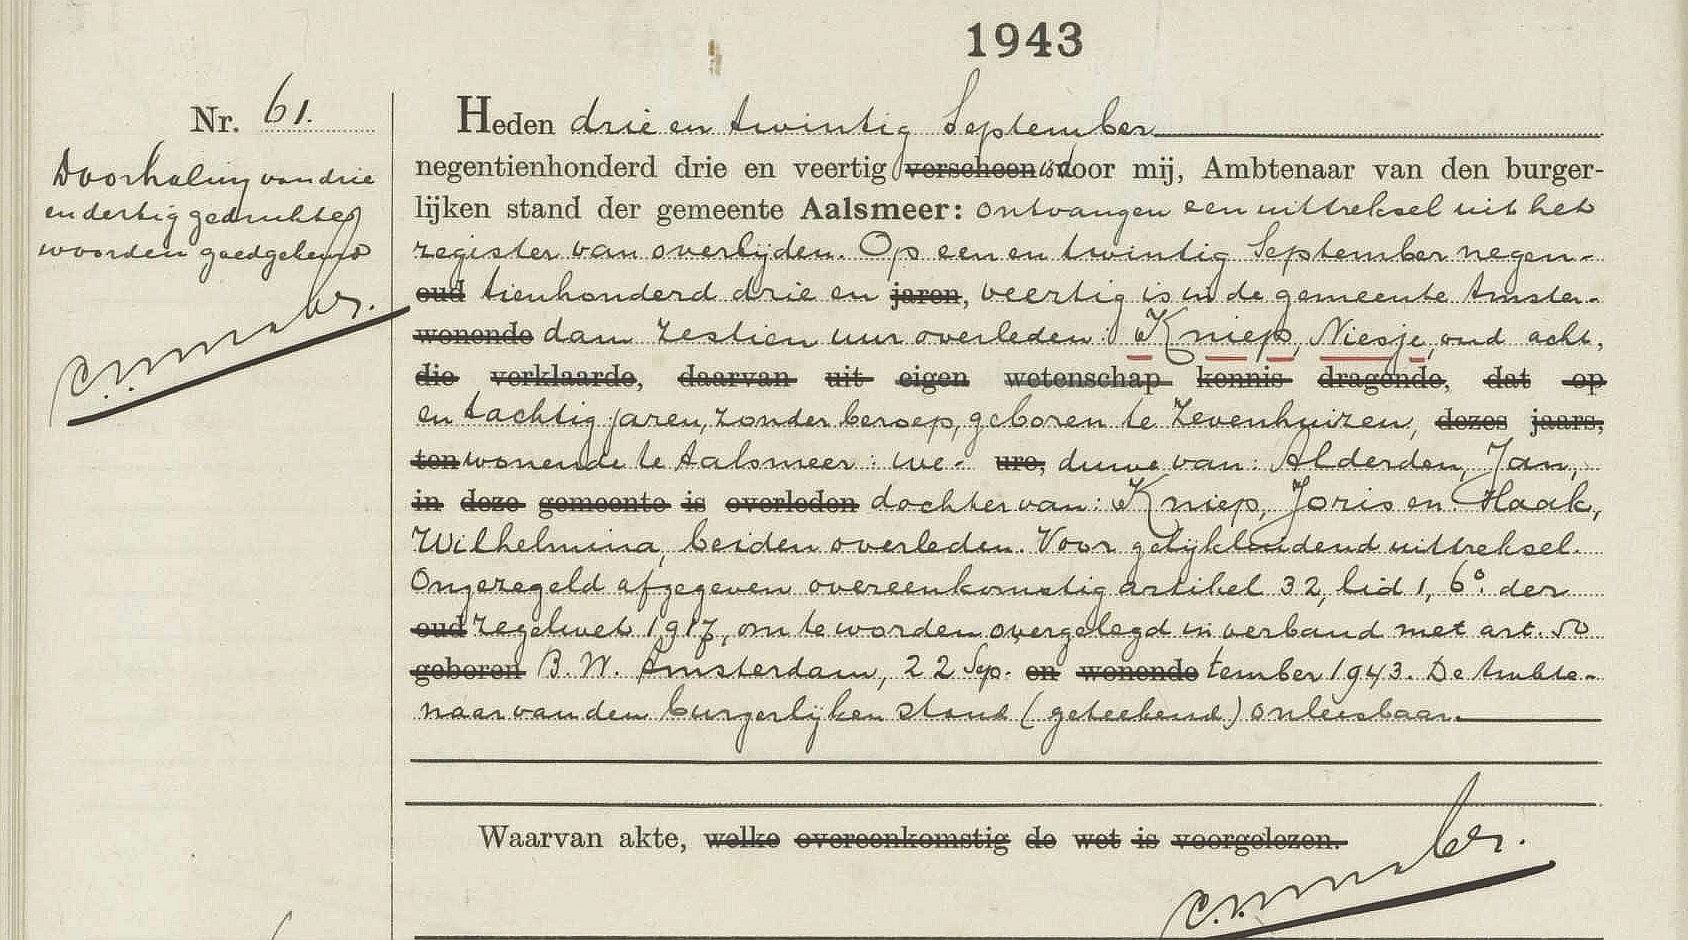 1943
Nr. 61.
Doorhaling van drie
en dertig gedrukte
woorden goedgekeurd
Heden drie en twintig September
negentienhonderd drie en veertig verscheen is door mij, Ambtenaar van den burger-
lijken stand der gemeente Aalsmeer: ontvangen een uittreksel uit het
register van overlijden. Op een en twintig September negen-
oud tienhonderd drie en jaren, veertig is in de gemeente Amster-
wonende dam zestien uur overleden: Kniep, Niesje, oud acht,
die verklaarde, daarvan uit eigen wetenschap kennis dragende, dat op
en tachtig jaren, zonder beroep, geboren te Zevenhuizen, dezes jaars,
ten wonende te Aalsmeer: we- ure, duwe van: Alderden, Jan,
in deze gemeente is overleden dochter van: Kniep, Joris en Haak,
Wilhelmina, beiden overleden. Voor gelijkluidend uittreksel.
Ongezegeld afgegeven overeenkomstig artikel 32, lid 1, 6º. der
oud Zegelwet 1917, om te worden overgelegd in verband met art. 50
geboren B.W. Amsterdam, 22 Sep- en wonende tember 1943. De Ambte-
naar van den burgerlijken stand (geteekend) onleesbaar.
Waarvan akte, welke overeenkomstig de wet is voorgelezen.